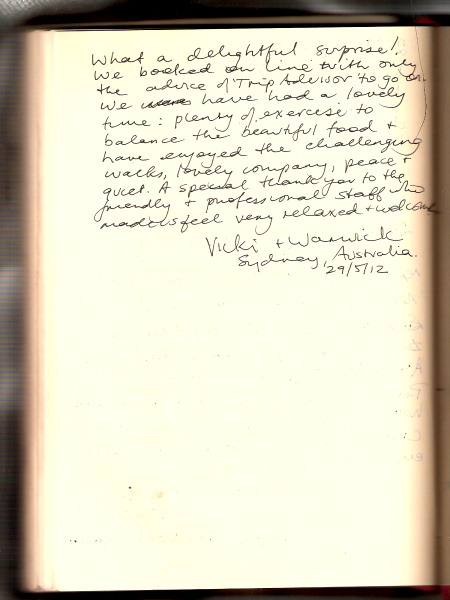 What a delightful surprise!
We booked on line with only
the advice of Trip Advisor to go on.
We have had a lovely
time: plenty of exercise to
balance the beautiful food +
have enjoyed the challenging
walks, lovely company, peace +
quiet. A special thank you to the
friendly + professional staff who
made us feel very relaxed + welcome
Vicki + Warwick
Sydney, Australia.
29/5/12